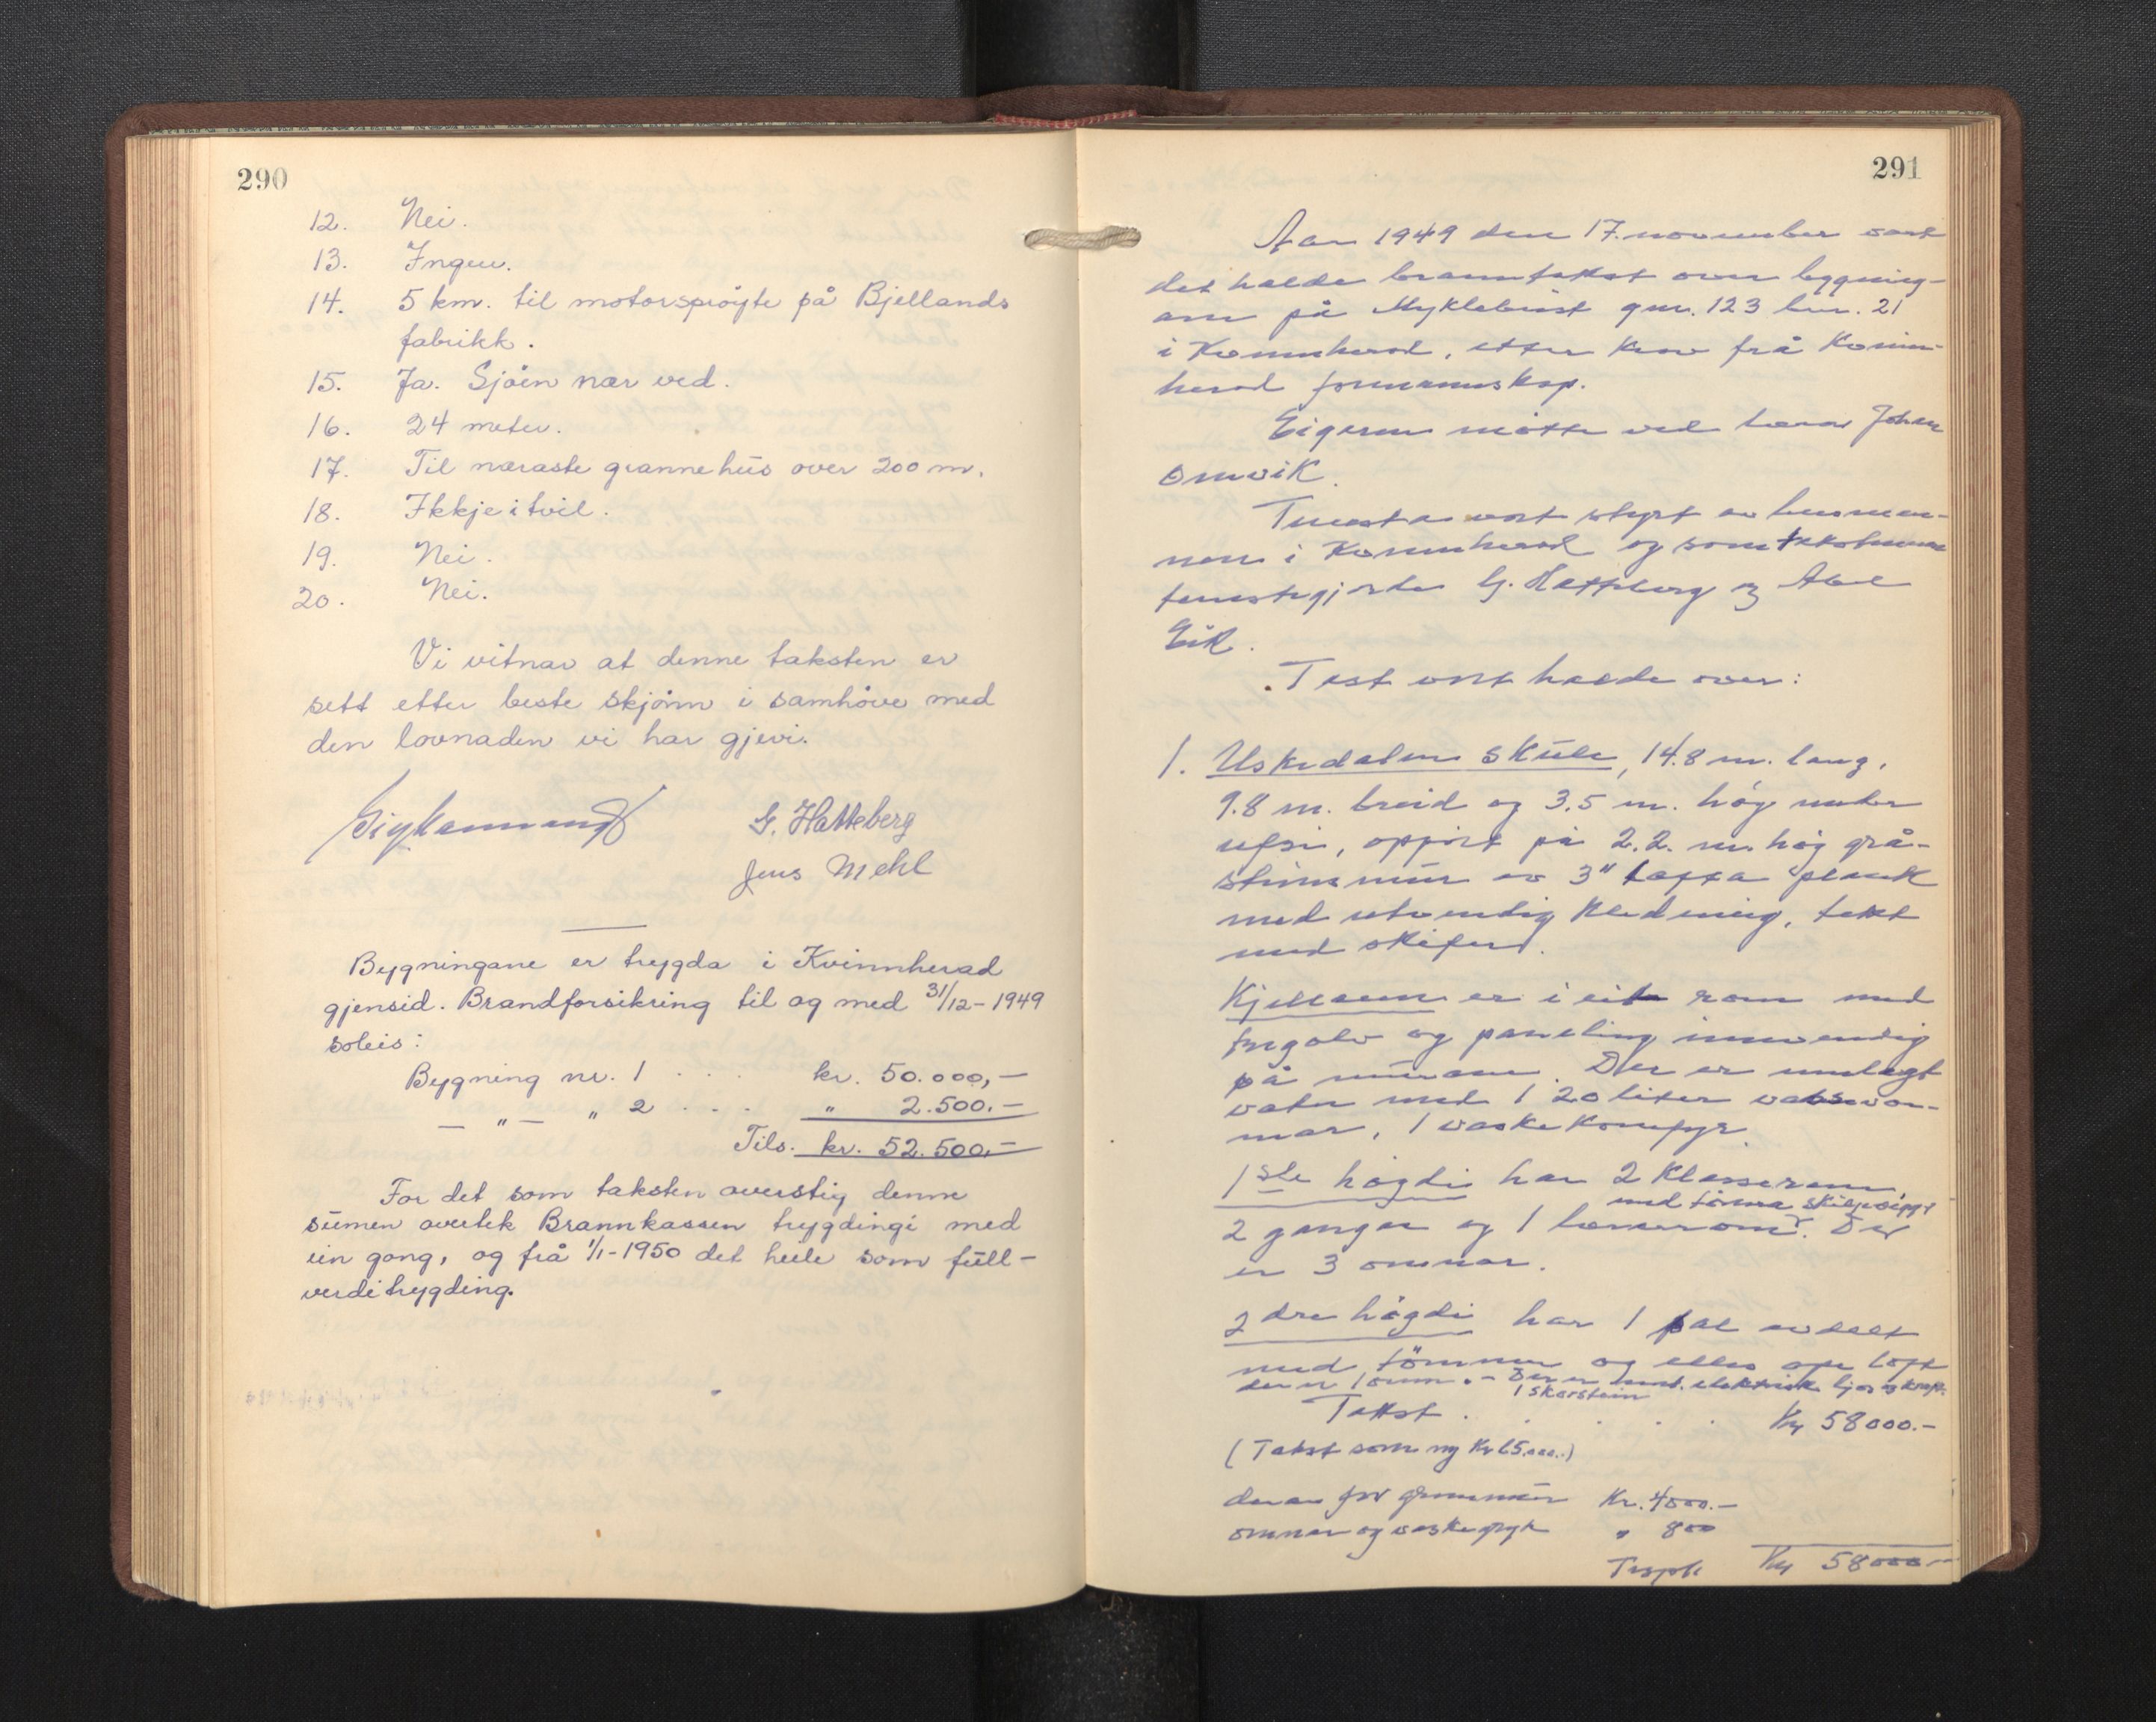 290
12. Nei.
13. Ingen.
14. 5 km. til motorsprøyte på Bjellands
fabrikk.
15. Ja. Sjøen nær ved.
16. 24 meter.
17. Til næraste grannehus over 200 m.
18. Ikkje i tvil.
19. Nei.
20. Nei.
Vi vitnar at denne taksten er
sett etter beste skjønn i samhøve med
den lovnaden vi har gjevi.
G. Hatteberg
Jens Mehl
Bygningane er trygda i Kvinnherad
gjensid. Brandforsikring til og med 31/12-1949
soleis:
Bygning nr. 1 . . . kr. 50.000,-
— " — " 2 . . . " 2.500.-
Tils. kr. 52.500,-
For det som taksten overstig denne
sumen overtek Brannkassen trygdingi med
ein gong, og frå 1/1-1950 det heile som full-
verditrygding.
291
Aar 1949 den 17. november vart
det halde branntakst over bygning-
ane på Myklebust gnr. 123 bnr. 21
i Kvinnherad, etter krav frå Kvinn-
herad formannskap.
Eigaren møtte ved lærar Johan
Omvik.
Tenesta vart styrt av lensman-
nen i Kvinnherad og som takstmenn
tenestegjorde G. Hatteberg og Abel
Eik.
Takst vart halde over:
1. Uskedalen skule, 14.8 m. lang,
9.8 m. breid og 3.5 m. høg under
ufsi, oppført på 2.2. m. høg grå-
steinsmur av 3" tappa plank
med utvendig kledning, tekt
med skifer.
Kjellaren er i eit rom med
tregolv og paneling innvendig
på murane. Der er innlagt
vatn med 1 20 liter vassvar-
mar, 1 vaskekomfyr.
1ste høgdi har 2 klasserom,
2 gangar og 1 lærarom. Der
er 3 omnar.
2dre høgdi har 1 sal avdelt
med tømmer og elles ope loft
der er 1 omn. - Der er innl. elektrisk ljos og kraft.
1 skorstein
Takst . . . . . Kr 58000.-
(Takst som ny Kr 65.000.-)
derav for grunnmur Kr. 4000.-
omnar og vaskegryte " 800
Kr 58000.-